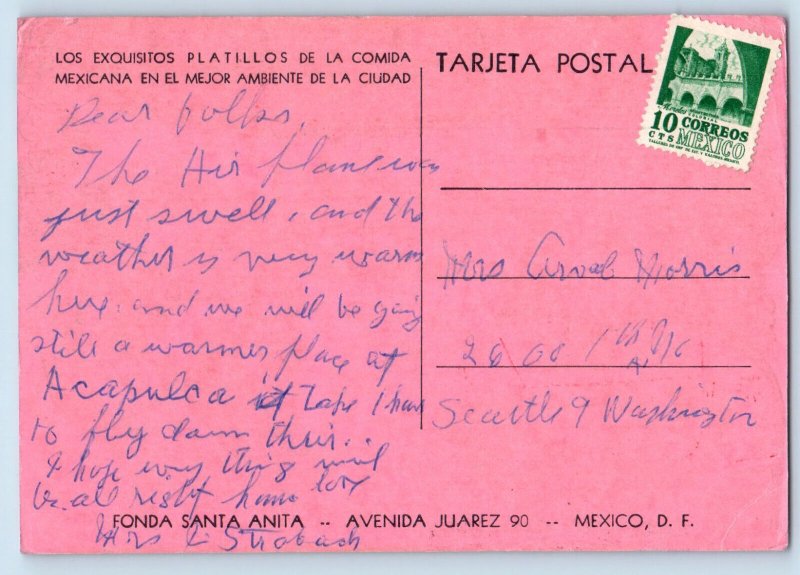 LOS EXQUISITOS PLATILLOS DE LA COMIDA
MEXICANA EN EL MEJOR AMBIENTE DE LA CIUDAD
Dear folks,
The Air plane was
just swell, and the
weather is very warm
here. and we will be going
still a warmer place at
Acapulca it take 1 hour
to fly down their..
I hope every thing will
be all right home love
Mrs Strobach
TARJETA POSTAL
10 CORREOS
CTS MEXICO
Mrs Morris
2608
Seattle 9 Washington
FONDA SANTA ANITA -- AVENIDA JUAREZ 90 -- MEXICO, D. F.